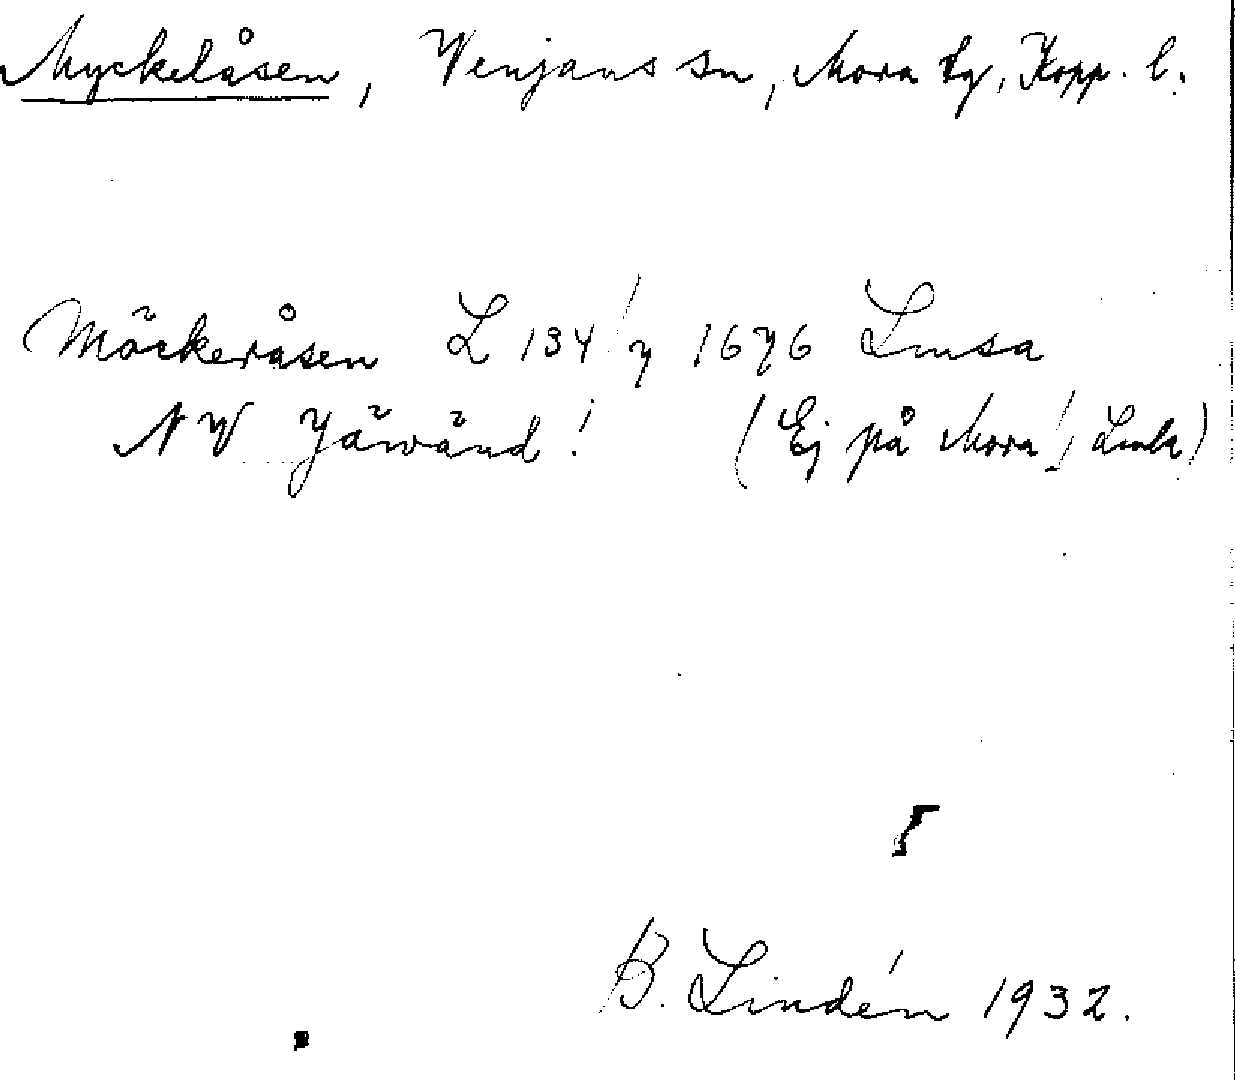 Myckelåsen, Venjans sn, Mora tg, Kopp. l.
Möckeråsen L 134 1676
NV Jäwänd! (Ej på Mora!
B. Lindén 1932.